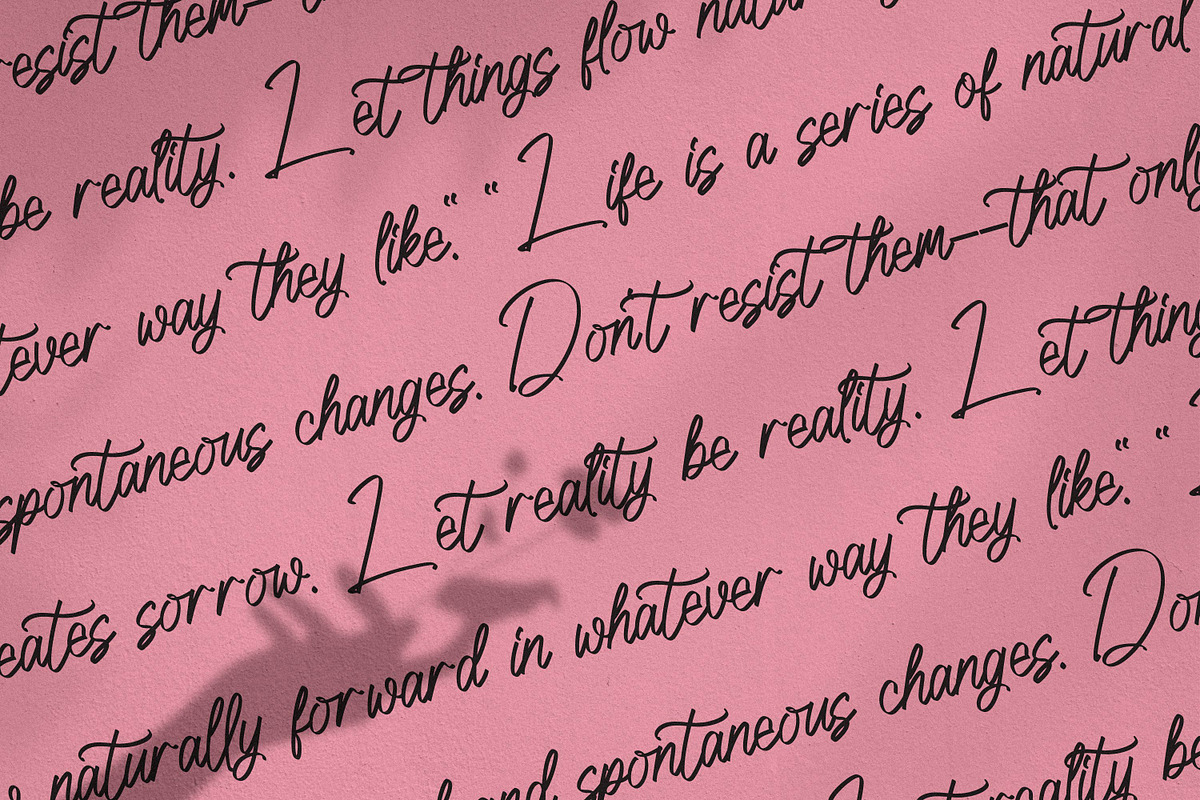 resist them—
be reality. Let things flow
tever way they like." "Life is a series of natural
spontaneous changes. Dont resist them—that only
eates sorrow. Let reality be reality. Let thing
naturally forward in whatever way they like."
and spontaneous changes. Do
reality be